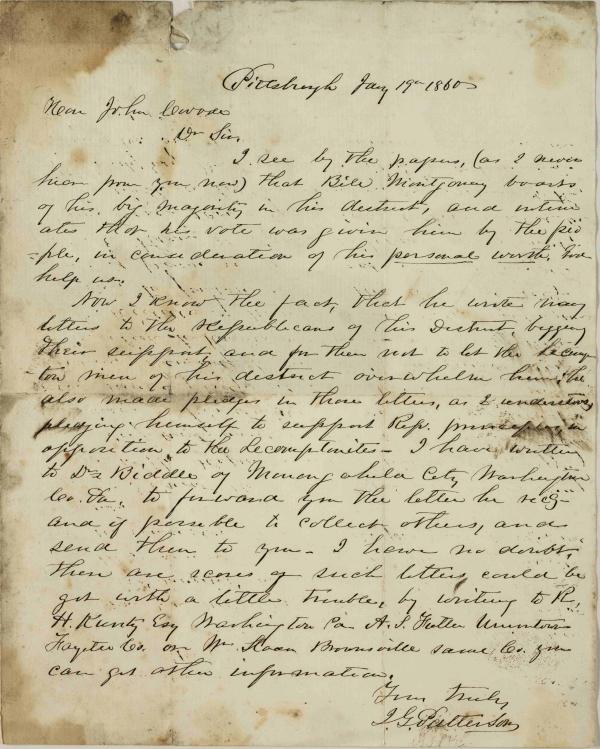 Pittsburgh Jany 19th 1860
Hon John Covode
Dr Sir
I see by the papers, (as I never
hear from you now) that Bile Montgomey boasts
of his big majority in his district, and intim
ates that his vote was given him by the peo
=ple, in consideration of his personal worth, God
help us.
Now I know the fact, that he wrote many
letters to the Republicans of his District, begging
their support, and for them not to let the Lecomp
ton men of his district overwhelm him, he
also made pledges in those letters, as I understand,
pledging himself to support Rep. principles in
opposition to the Lecomptonites - I have written
to Dr Biddle of Monongahela City, Washington
Co. Pa. to forward you the letter he recd
and if possible to collect others, and
send them to you - I have no doubt,
there are scores of such letters could be
got with a little trouble, by writing to
H. Kuntz Esq Washington Pa A. J. Fuller Uniontown
Fayette Co. or Wm Sloan Brownsville same Co. you
can get other information.
Yours truly
J. G. Patterson